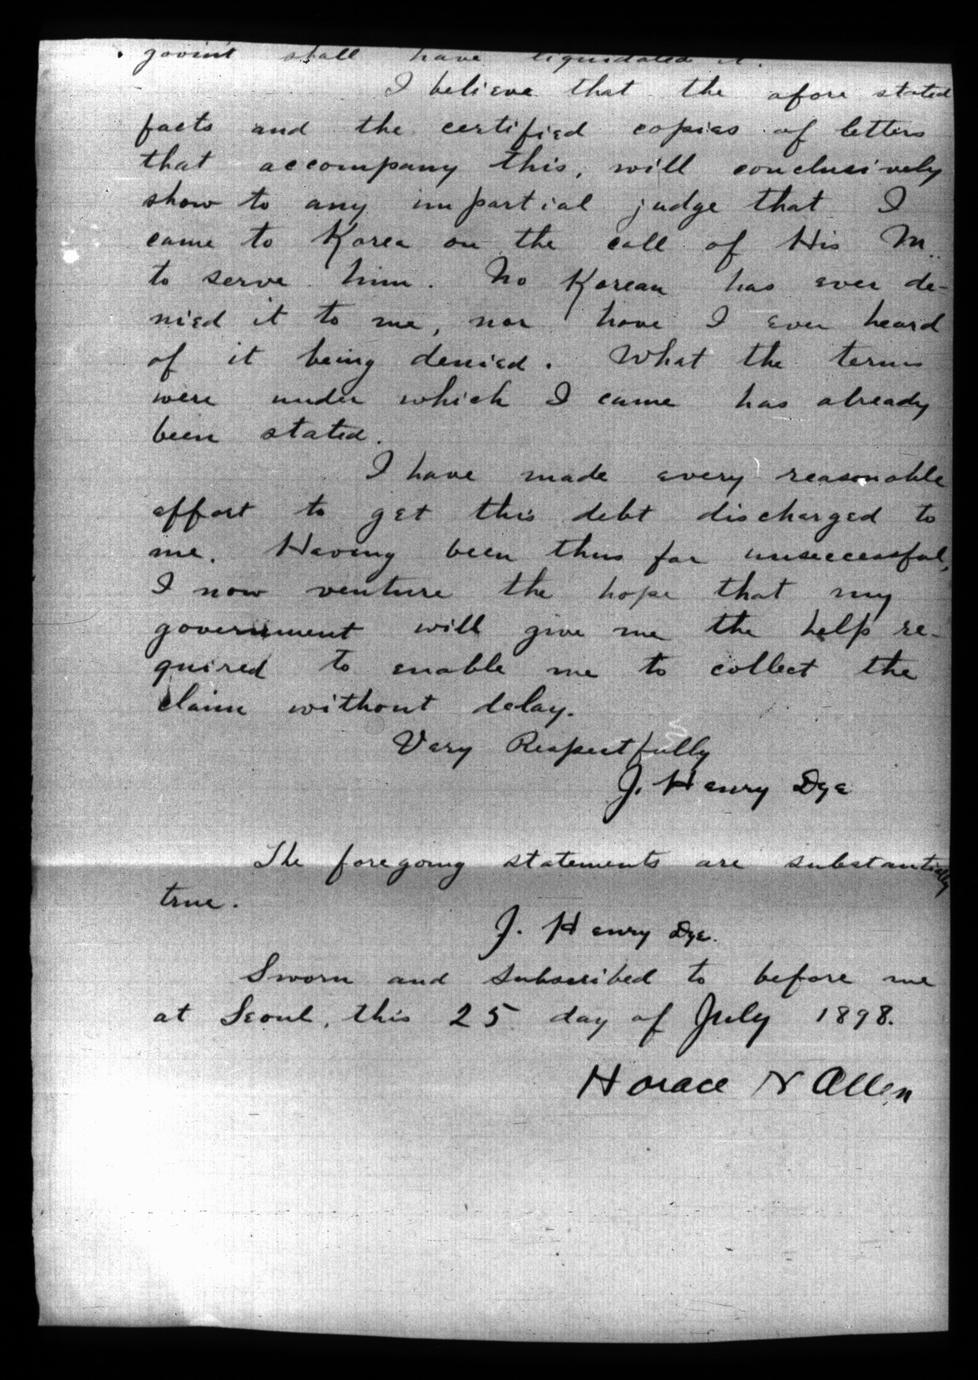 govn't shall have liquidated it.
I believe that the afore stated
facts and the certified copies of letters
that accompany this, will conclusively
show to any impartial judge that I
came to Korea on the call of His M.
to serve him. No Korean has ever de-
nied it to me, nor have I ever heard
of it being denied. What the terms
were under which I came has already
been stated.
I have made every reasonable
effort to get this debt discharged to
me. Having been thus far unsuccessful,
I now venture the hope that my
government will give me the help re-
quired to enable me to collect the
claim without delay.
Very Respectfully
J. Henry Dye
The foregoing statements are substantially
true.
J. Henry Dye.
Sworn and subscribed to before me
at Seoul, this 25 day of July 1898.
Horace N Allen